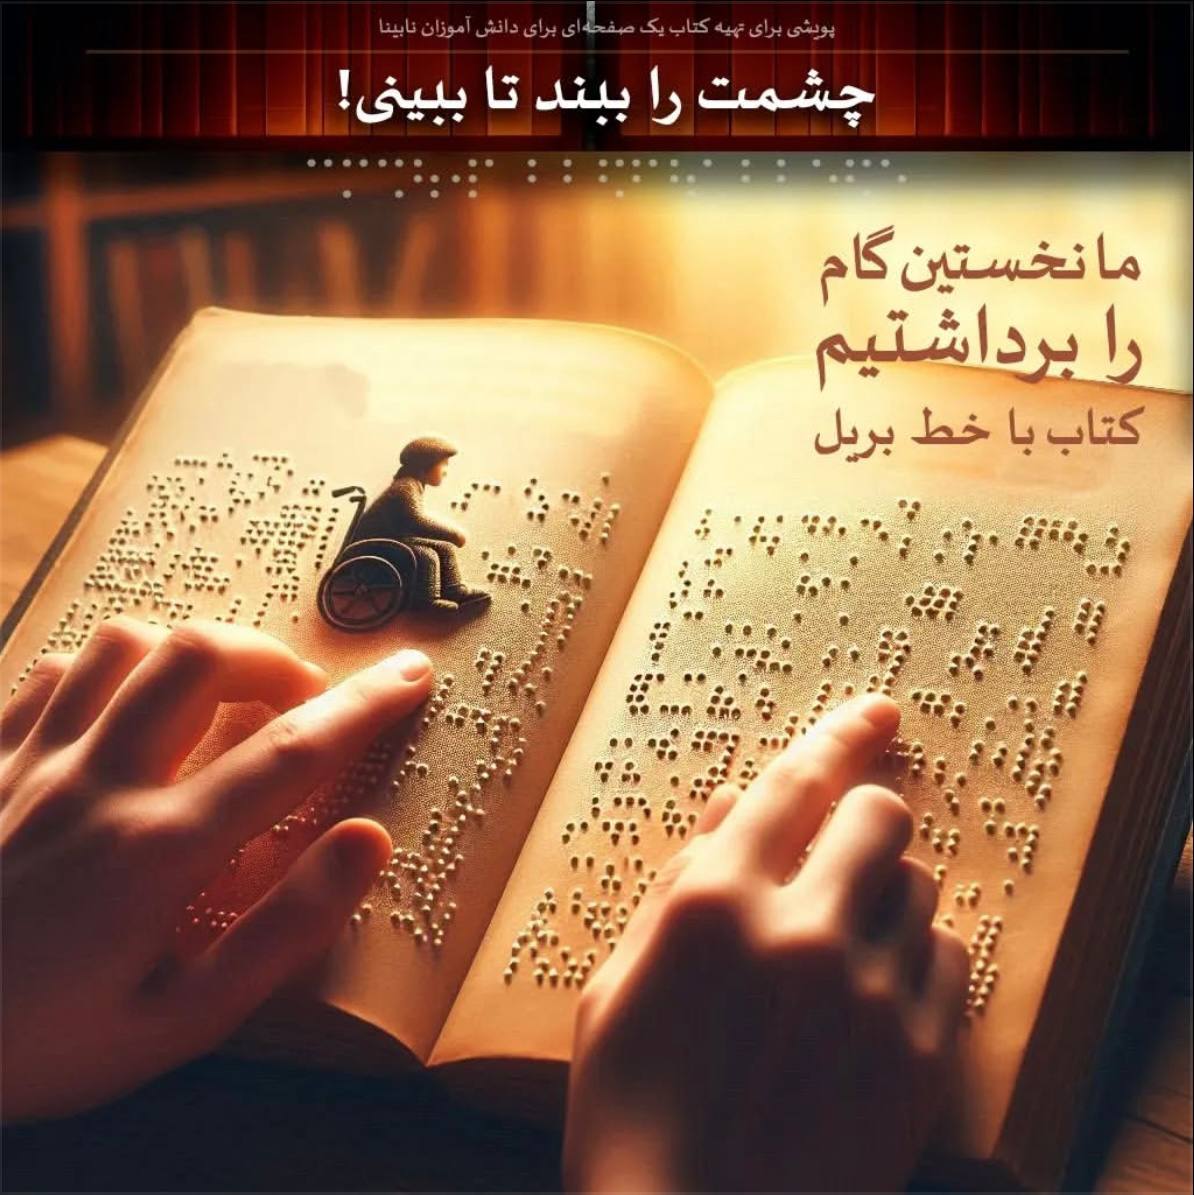 پویشی برای تهیه کتاب یک صفحه‌ای برای دانش آموزان نابینا
چشمت را ببند تا ببینی!
ما نخستین گام
را برداشتیم
کتاب با خط بریل